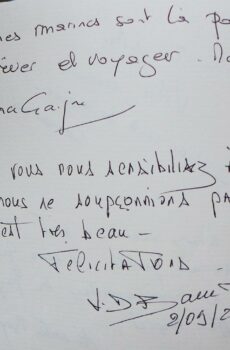 nes marines sont là po
rêver et voyager. Me
vous nous sensibilisez à
nous ne soupçonnions pa
est très beau –
FéLICITATIONS
2/09/2